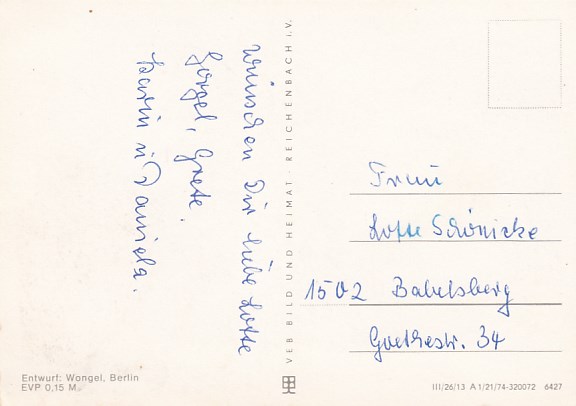 wünschen Dir liebe Lotte
Gorgel, Grete.
Karin u Daniela.
VEB BILD UND HEIMAT · REICHENBACH i.V.
Frau
Lotte Schönicke
1502 Babelsberg
Goethestr. 34
Entwurf: Wongel, Berlin
EVP 0,15 M
III/26/13 A 1/21/74-320072 6427